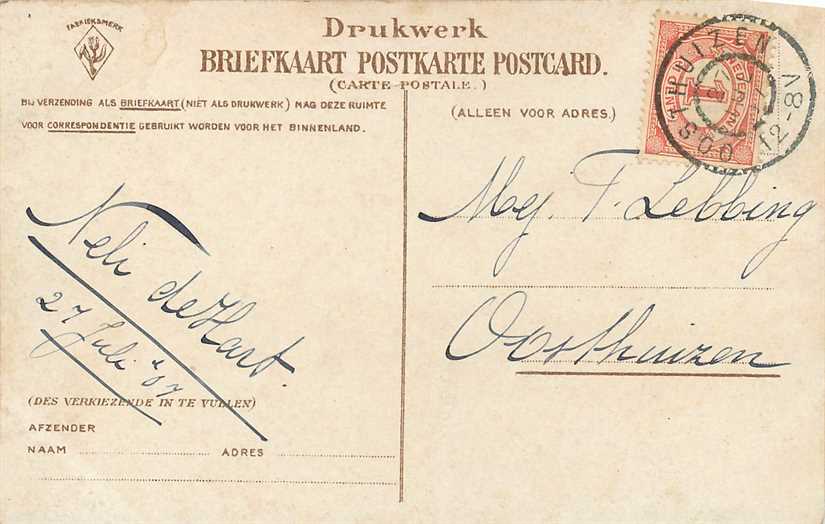 FABRIEKSMERK
Drukwerk
BRIEFKAART POSTKARTE POSTCARD.
(CARTE-POSTALE.)
BIJ VERZENDING ALS BRIEFKAART (NIET ALS DRUKWERK) MAG DEZE RUIMTE
VOOR CORRESPONDENTIE GEBRUIKT WORDEN VOOR HET BINNENLAND.
(ALLEEN VOOR ADRES.)
OOSTHUIZEN
12-8V
1
NEDERLAND
Neli de Hart.
27 Juli '07
(DES VERKIEZENDE IN TE VULLEN)
AFZENDER
NAAM ADRES
Mej. F. Lebbing
Oosthuizen